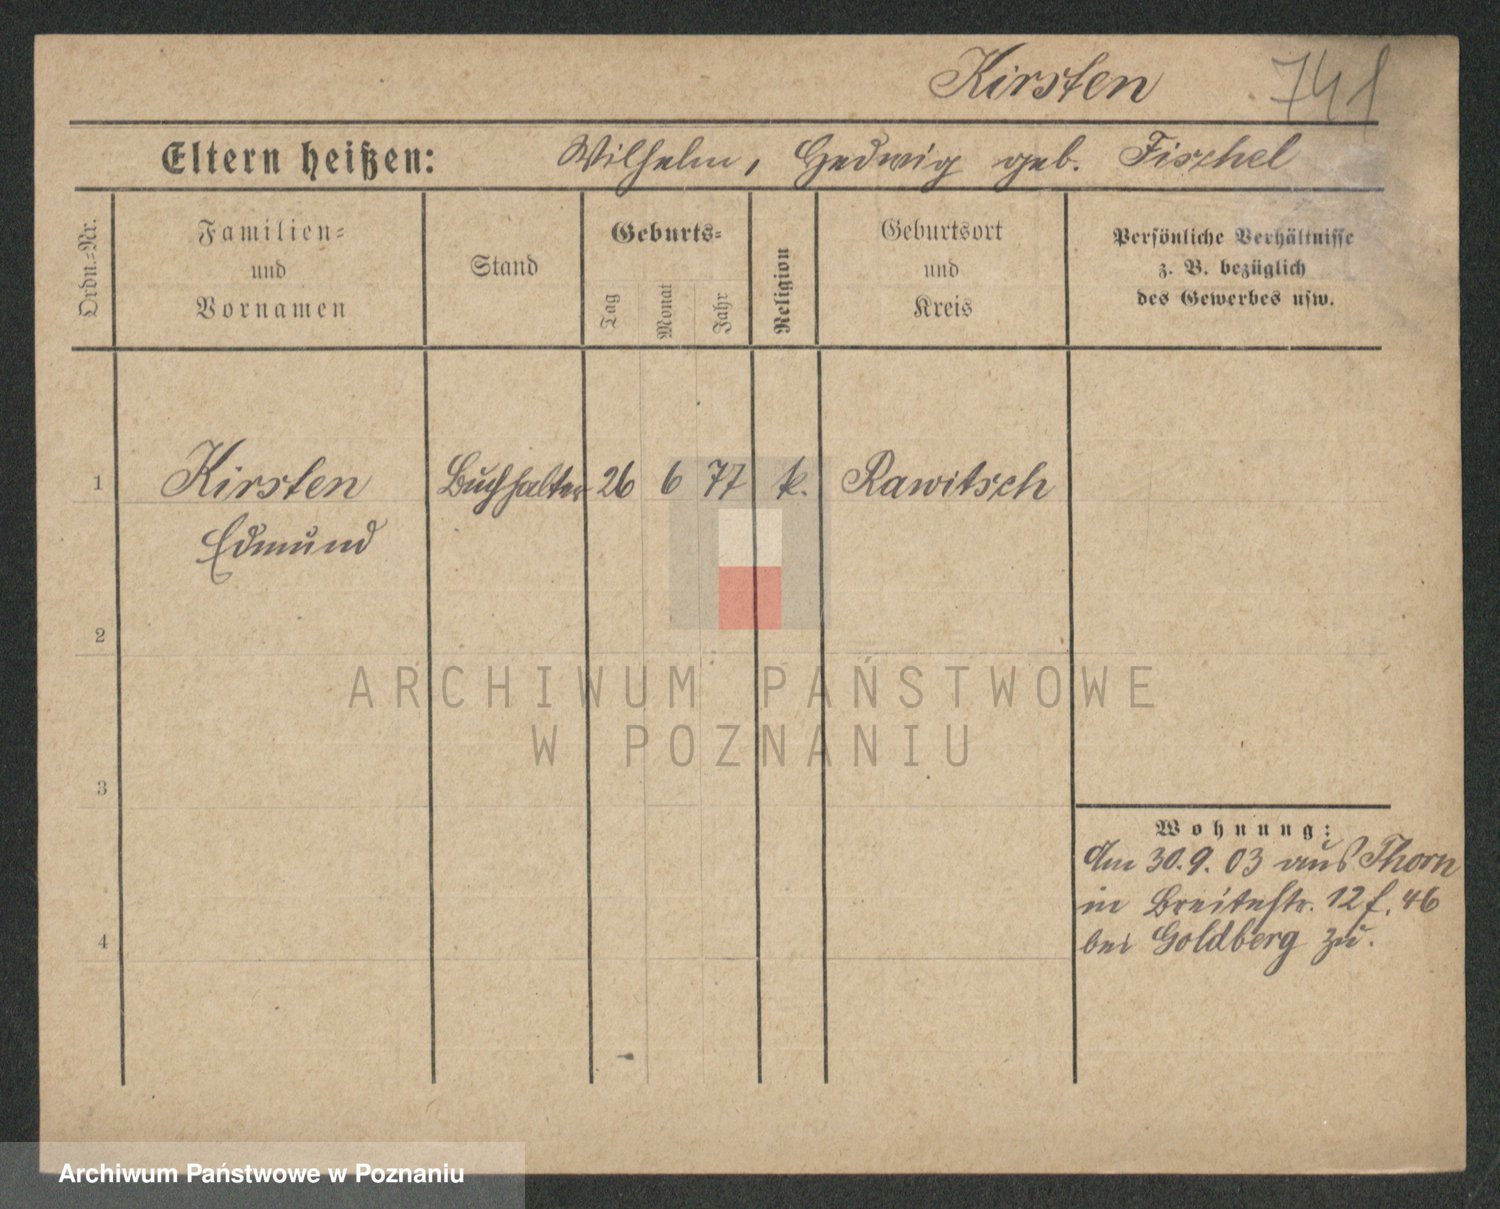 Kirsten 741
Eltern heißen: Wilhelm, Hedwig geb. Fischel
Ordn.-Nr.
Familien-
und
Vornamen
Stand
Geburts-
Tag
Monat
Jahr
Religion
Geburtsort
und
Kreis
Persönliche Verhältnisse
z. B. bezüglich
des Gewerbes usw.
1 Kirsten Buchhalter 26 6 77 k. Rawitsch
Edmund
2
ARCHIWUM PAŃSTWOWE
W POZNANIU
3
Wohnung:
Am 30.9.03 aus Thorn
in Breitestr. 12 f. 46
4
bei Goldberg zu.
Archiwum Państwowe w Poznaniu